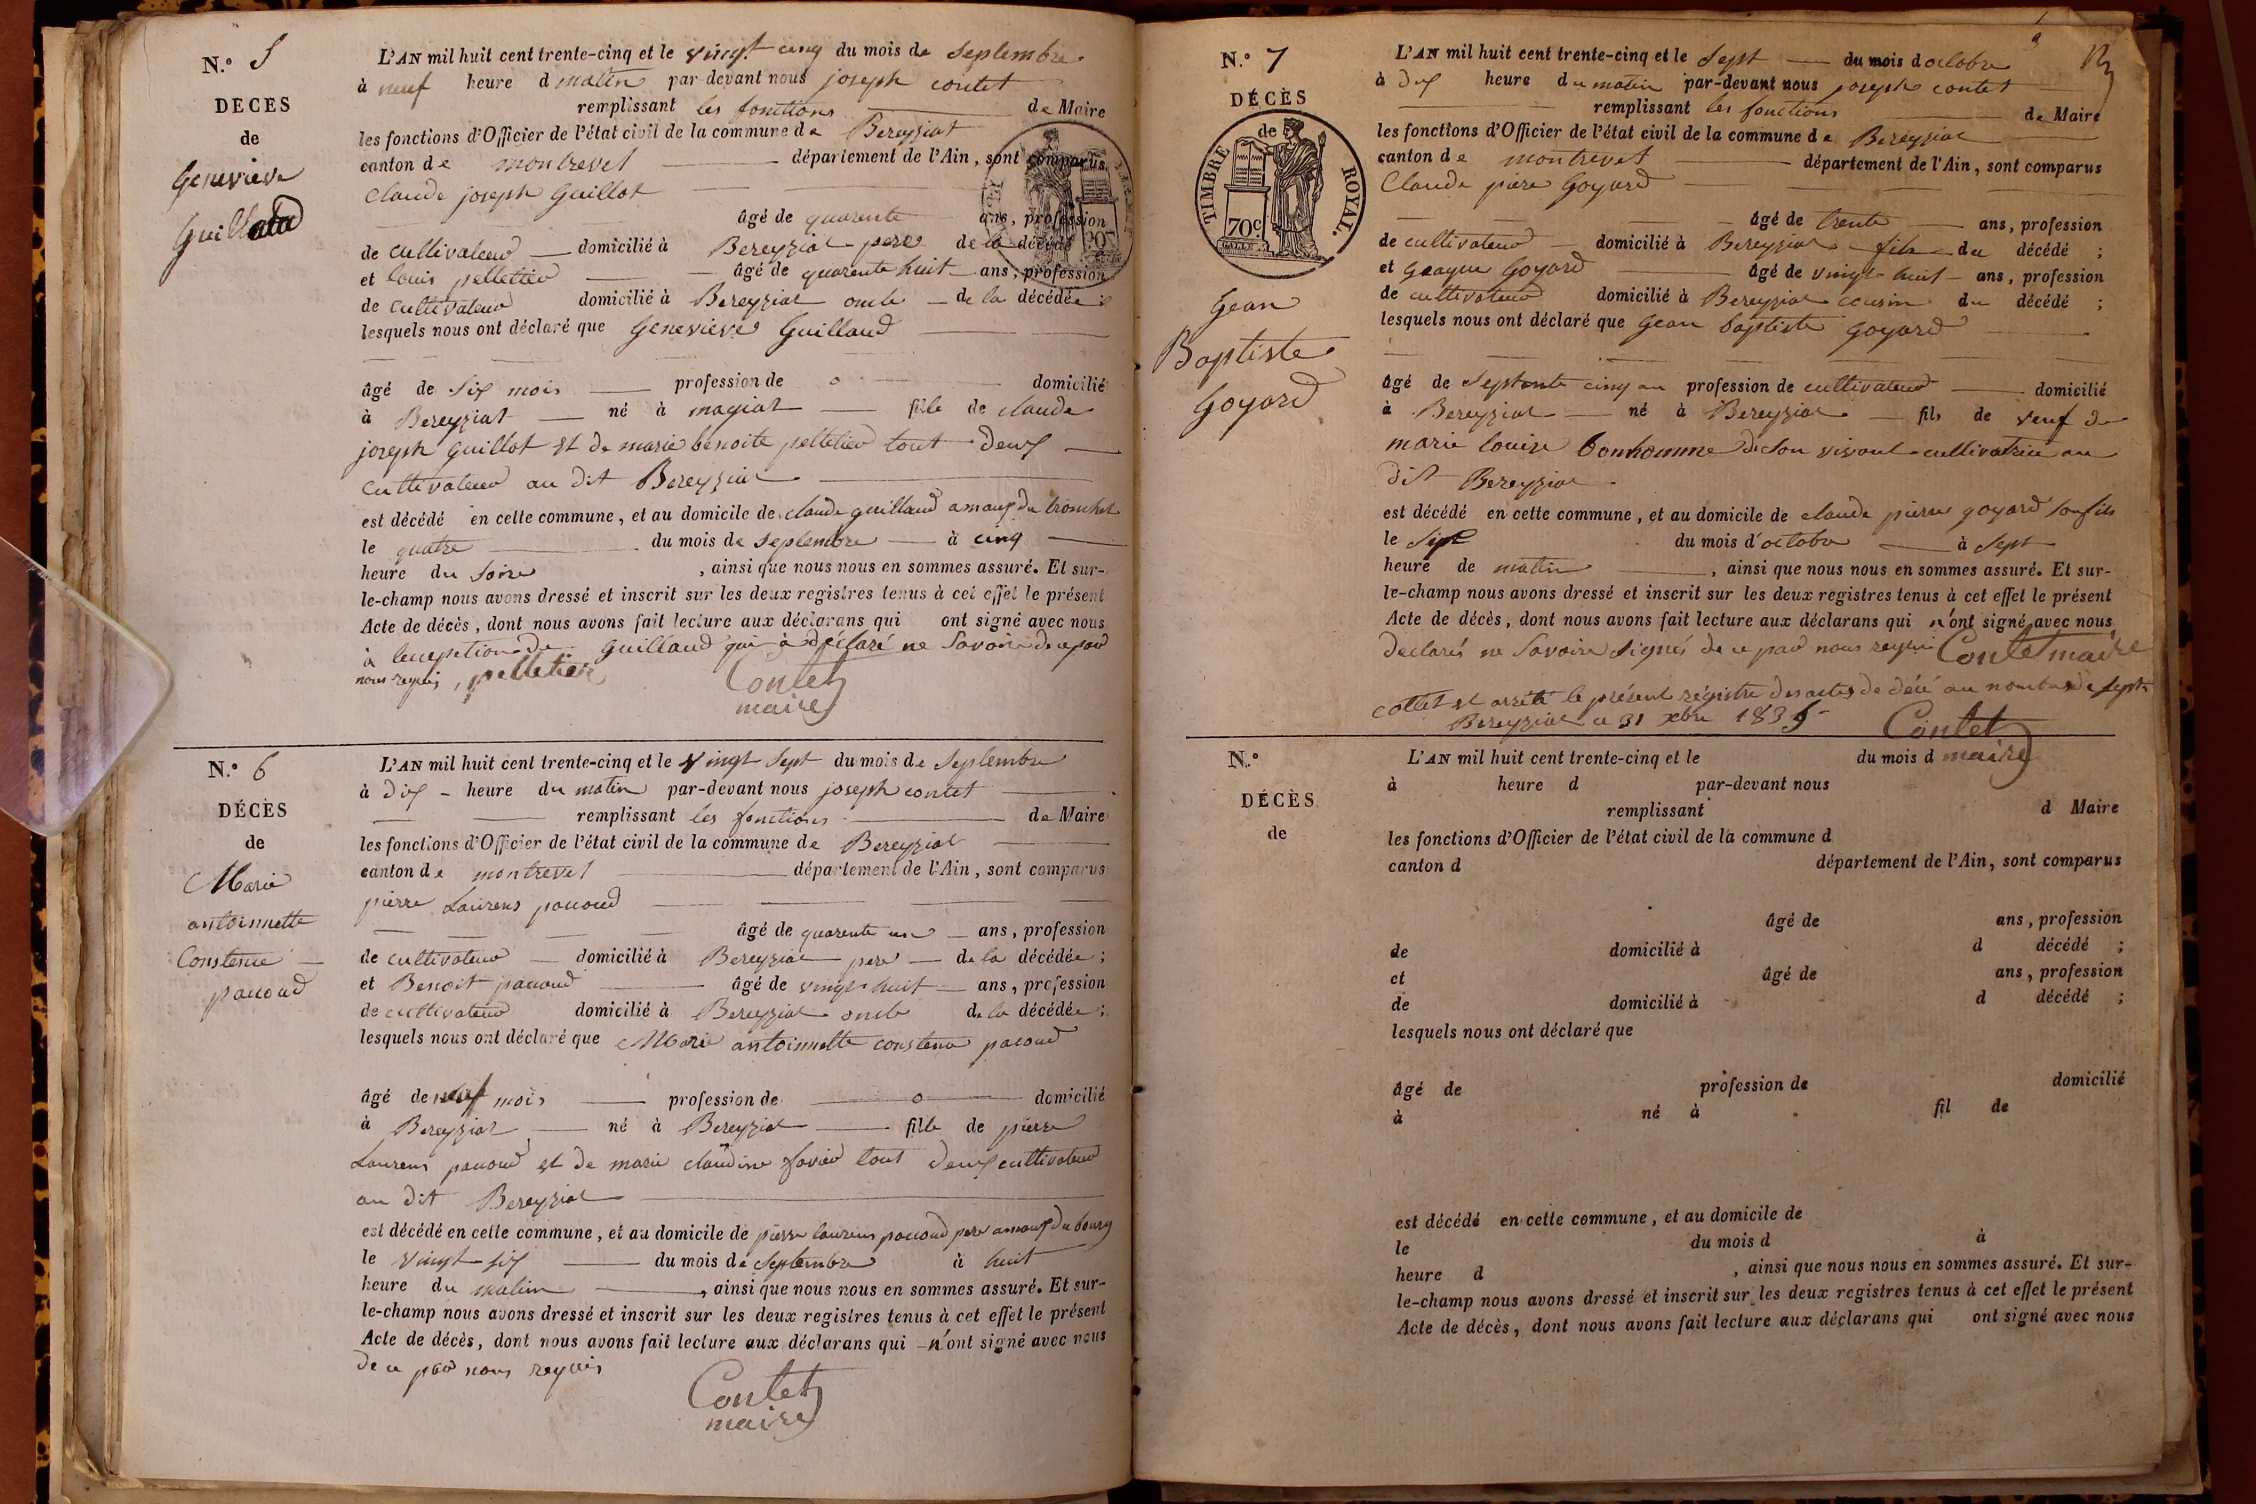 N.º 5
DECES
de
Genevieve
Guilland
L'AN mil huit cent trente-cinq et le vingt cinq du mois de septembre
à neuf heure d matin par devant nous joseph contet
remplissant les fonctions de Maire
les fonctions d'Officier de l'état civil de la commune de Bereyziat
canton de montrevel département de l'Ain, sont comparus
Claude joseph Guillot
âgé de quarente ans, profession
de cultivateur domicilié à Bereyziat pere de la décédé
et louis pelletier âgé de quarente huit ans, profession
de cultivateur domicilié à Bereyziat oncle de la décédée ;
lesquels nous ont déclaré que Genevieve Guilland
âgé de six mois profession de o domicilié
à Bereyziat né à fille de claude
joseph Guillot et de marie benoite pelletier tout deux
cultivateur au dit Bereyziat
est décédé en cette commune, et au domicile de claude guilland amaux du tronchet
le quatre du mois de septembre à cinq
heure du soire , ainsi que nous nous en sommes assuré. Et sur-
le-champ nous avons dressé et inscrit sur les deux registres tenus à cet effet le présent
Acte de décès, dont nous avons fait lecture aux déclarans qui ont signé avec nous
à lexception de Guilland qui à déclaré ne savoire de ce par
nous requis, pelletier Contet
maire
N.º 6
DÉCÈS
de
Marie
antoinnette
Constence
pauoud
L'AN mil huit cent trente-cinq et le vingt sept du mois de septembre
à dix heure du matin par-devant nous joseph contet
remplissant les fonctions de Maire
les fonctions d'Officier de l'état civil de la commune de Bereyziat
canton de montrevel département de l'Ain, sont comparus
pierre Laurens pauoud
âgé de quarente un ans, profession
de cultivateur domicilié à Bereyziat pere de la décédée ;
et Benoit pauoud âgé de vingt huit ans, profession
de cultivateur domicilié à Bereyziat oncle de la décédée ;
lesquels nous ont déclaré que Marie antoinnette constence pauoud
âgé de neuf mois profession de o domicilié
à Bereyziat né à Bereyziat fille de pierre
Laurens pauoud et de marie claudine favier tout deux cultivateur
au dit Bereyziat
est décédé en cette commune, et au domicile de pierre laurens pauoud pere amaux du bourg
le vingt six du mois de septembre à huit
heure du matin , ainsi que nous nous en sommes assuré. Et sur-
le-champ nous avons dressé et inscrit sur les deux registres tenus à cet effet le présent
Acte de décès, dont nous avons fait lecture aux déclarans qui n'ont signé avec nous
de ce par nous requis
Contet
maire
N.º 7
DÉCÈS
de
TIMBRE ROYAL.
70c.
Gean
Baptiste
Goyard
L'AN mil huit cent trente-cinq et le sept du mois d octobre
à dix heure du matin par-devant nous joseph contet
remplissant les fonctions de Maire
les fonctions d'Officier de l'état civil de la commune de Bereyziat
canton de montrevel département de l'Ain, sont comparus
Claude piere Goyard
âgé de trente ans, profession
de cultivateur domicilié à Bereyziat fils du décédé ;
et Goyard âgé de vingt huit ans, profession
de cultivateur domicilié à Bereyziat cousin du décédé ;
lesquels nous ont déclaré que Gean baptiste Goyard
âgé de septente cinq an profession de cultivateur domicilié
à Bereyziat né à Bereyziat fils de veuf de
marie louise bonhomme de son vivant cultivatrice au
dit Bereyziat
est décédé en cette commune, et au domicile de claude pierre goyard son fils
le sept du mois d'octobre à sept
heure de matin , ainsi que nous nous en sommes assuré. Et sur-
le-champ nous avons dressé et inscrit sur les deux registres tenus à cet effet le présent
Acte de décès, dont nous avons fait lecture aux déclarans qui n'ont signé avec nous
declarés ne savoire signés de ce par nous requis Contet maire
et arrété le présent régistre des actes de décé au nombre de sept
Bereyziat ce 31 xbre 1835
Contet
maire
N.º
DÉCÈS
de
L'AN mil huit cent trente-cinq et le du mois d
à heure d par-devant nous
remplissant d Maire
les fonctions d'Officier de l'état civil de la commune d
canton d département de l'Ain, sont comparus
âgé de ans, profession
de domicilié à d décédé ;
et âgé de ans, profession
de domicilié à d décédé ;
lesquels nous ont déclaré que
âgé de profession de domicilié
à né à fil de
est décédé en cette commune, et au domicile de
le du mois d à
heure d , ainsi que nous nous en sommes assuré. Et sur-
le-champ nous avons dressé et inscrit sur les deux registres tenus à cet effet le présent
Acte de décès, dont nous avons fait lecture aux déclarans qui ont signé avec nous